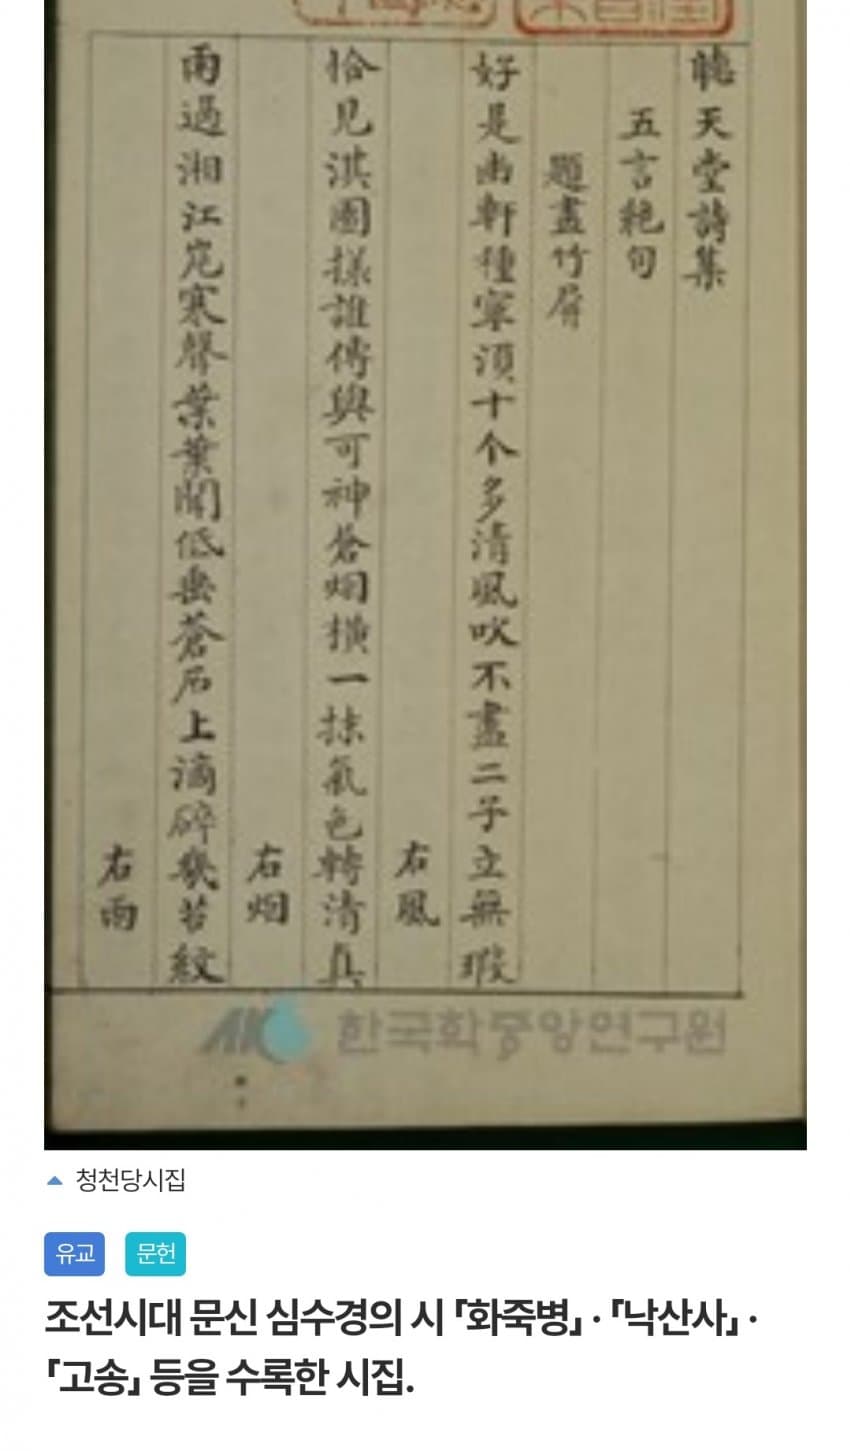 聽天堂詩集
五言絶句
題畫竹屛
好是幽軒種寧須十个多淸風吹不盡二子立無瑕
右風
恰見淇園樣誰傳與可神蒼烟橫一抹氣色轉淸眞
右烟
雨過湘江岸寒聲葉葉聞低垂蒼石上滴碎幾苔紋
右雨
한국학중앙연구원
청천당시집
유교 문헌
조선시대 문신 심수경의 시 「화죽병」·「낙산사」·
「고송」 등을 수록한 시집.